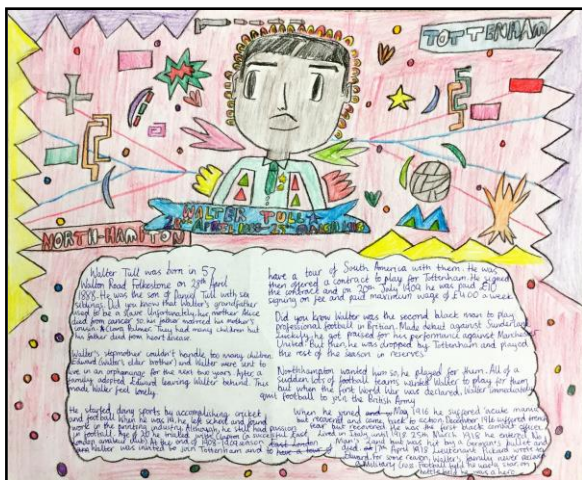 TOTTENHAM
WALTER TULL
28TH APRIL 1888 - 25TH MARCH 1918
NORTH-HAMPTON
Walter Tull was born in 57
Walton Road Folkestone on 28th April
1888. He was the son of Daniel Tull with six
siblings. Did you know that Walter's grandfather
used to be a slave. Unfortunately, his mother Alice
died from cancer so his father married his mother's
cousin Clara Palmer. They had many children but
his father died from heart disease.
Walter's stepmother couldn't handle too many children
Edward (Walter's older brother) and Walter were sent to
live in an orphanage for the next two years. After a
family adopted Edward leaving Walter behind. This
made Walter feel lonely.
He started many sports by accomplishing cricket
and football. When he was 14, he left school and found
work in the printing industry. Although, he still had passion
in football. Age of 20 he trialed with Clapton (a successful East
London amateur club). At the end of 1908-1909 season
and Walter was invited to join Tottenham and to have a tour of
have a tour of South America with them. He was
then offered a contract to play for Tottenham. He signed
the contract and on 20th July 1909 he was paid £10
signing on fee and paid maximum wage of £4.00 a week.
Did you know Walter was the second black man to play
professional football in Britain. Made debut against Sunderland
Luckily, he got praised for his performance against Manchester
United. But then, he was dropped by Tottenham and played
the rest of the season in reserves.
Northampton wanted him so, he played for them. All of a
sudden lots of football teams wanted Walter to play for them
but when the first World War was declared. Walter immediately
quit football to join the British Army.
When he joined May 1916 he suffered 'acute mania'
but recovered and came back to action. December 1916 suffered
fever but recovered. He was the first black combat officer.
Lived in Italy until 1918. 25th March 1918 he entered No
Man's Land but was hit by a German's bullet and
died. 17th April 1918 Lieutenant Pickard wrote to
Edward. For some reason, Walter's family never received
a Military Cross. Football field he
battle field he was a hero.